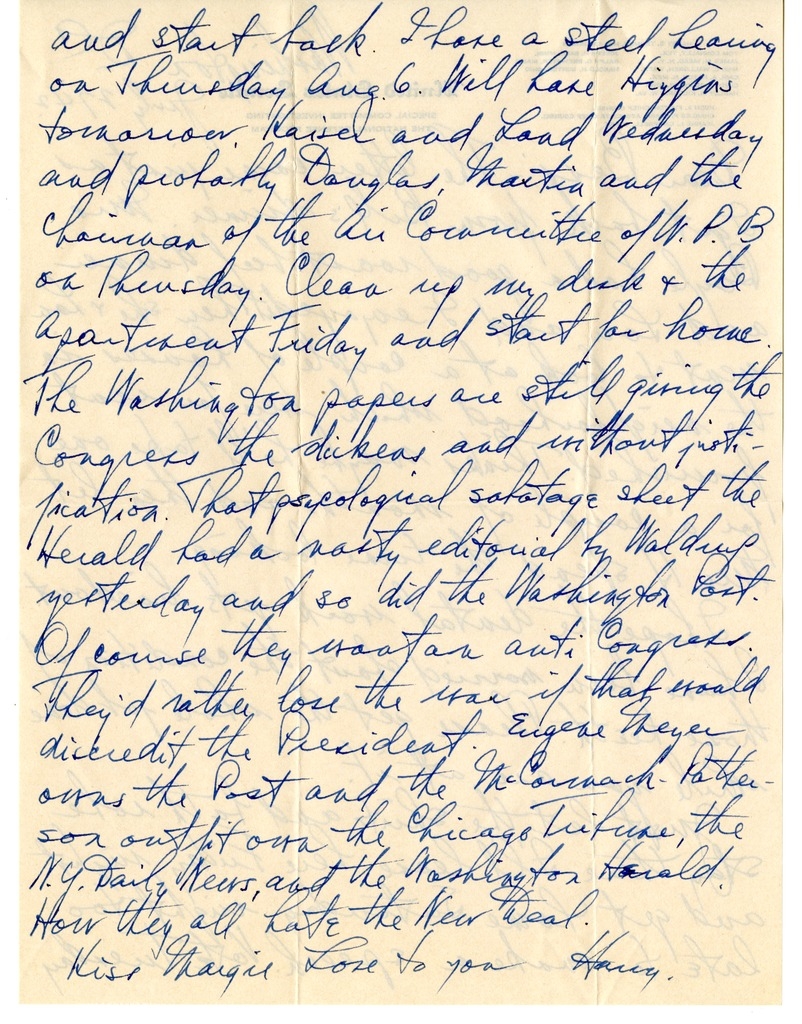 and start back. I have a steel hearing
on Thursday Aug. 6. Will have Higgins
tomorrow. Kaiser and Land Wednesday
and probably Douglas, Martin and the
Chairman of the Air Committee of W. P. B
on Thursday. Clean up my desk & the
apartment Friday and start for home.
The Washington papers are still giving the
Congress the dickens and without justi-
fication. That psycological sabotage sheet the
Herald had a nasty editorial by Waldrup
yesterday and so did the Washington Post.
Of course they want an anti Congress.
They'd rather lose the war if that would
discredit the President. Eugene Meyer
owns the Post and the McCormack-Patter-
son outfit own the Chicago Tribune, the
N.Y. Daily News, and the Washington Herald.
How they all hate the New Deal.
Kiss Margie Love to you Harry.